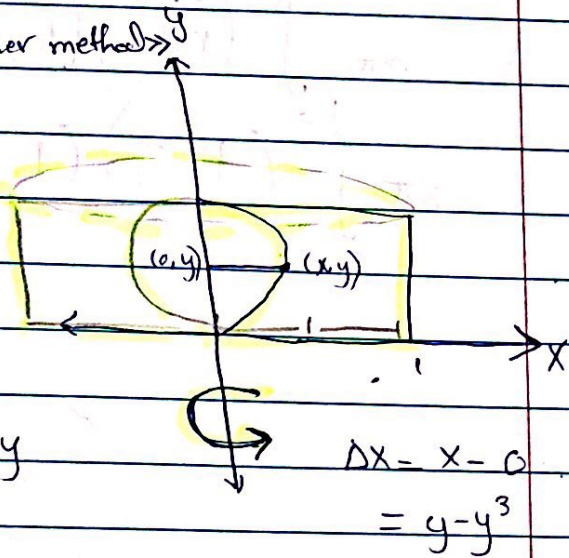 er method>>
y
(0,y)
(x,y)
1
1
X
y
Δx = x - 0
= y - y³